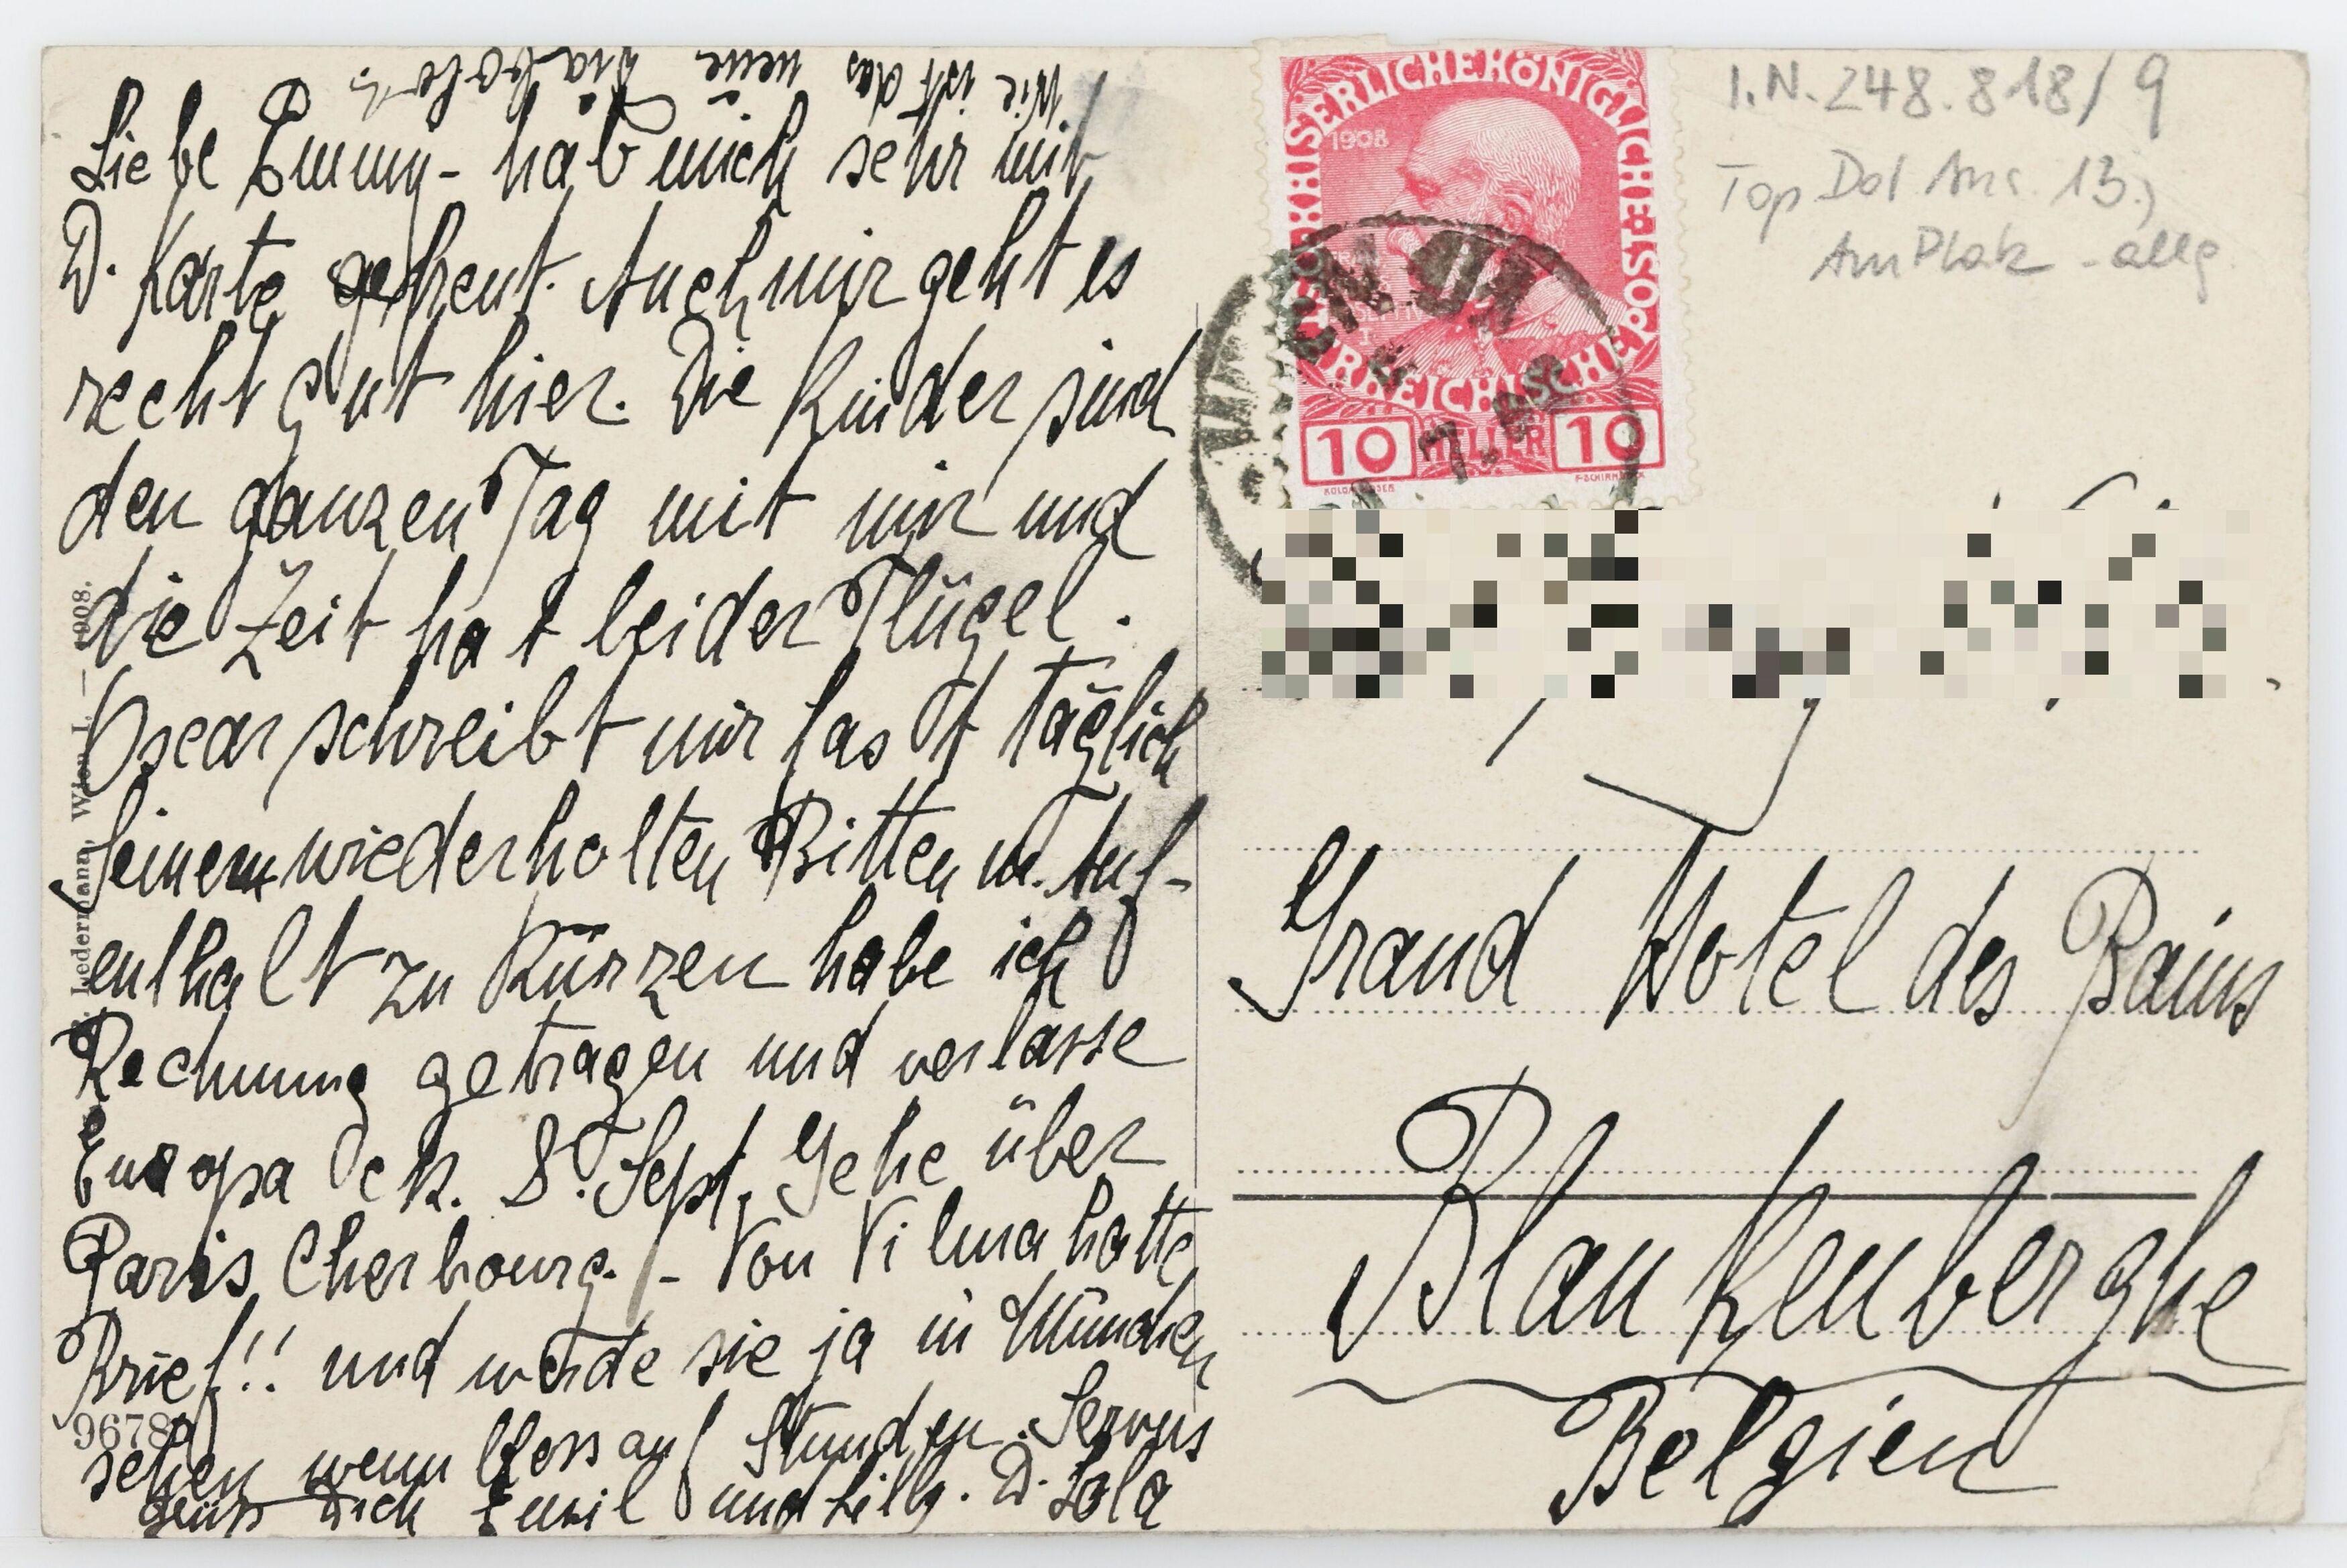 Wie ist das neue
Liebe Emmy - hab mich sehr mit
D. Karte gefreut. Auch mir geht es
recht gut hier. Die Kinder sind
den ganzen Tag mit mir und
die Zeit hat leider Flügel.
Oscar schreibt mir fast täglich
Seinem wiederholten Bitten m. Auf-
enthalt zu kürzen habe ich
Rechnung getragen und verlasse
Europa 8. Sept. Gehe über
Paris Cherbourg. - Von Vilma hatte
Brief!! und werde sie ja in München
sehen wenn auf Stunden. Servus
grüss Dich Emil und Lilly. D. Lola
B. Ledermann, Wien I. — 1908.
9678
KAISERLICHE KÖNIGLICHE ÖSTERREICHISCHE POST
1908
10 HELLER 10
WIEN
I.N. 248.818/9
Top Dol Anr. 13,
Am Platz - allg.
Grand Hotel des Bains
Blankenberghe
Belgien